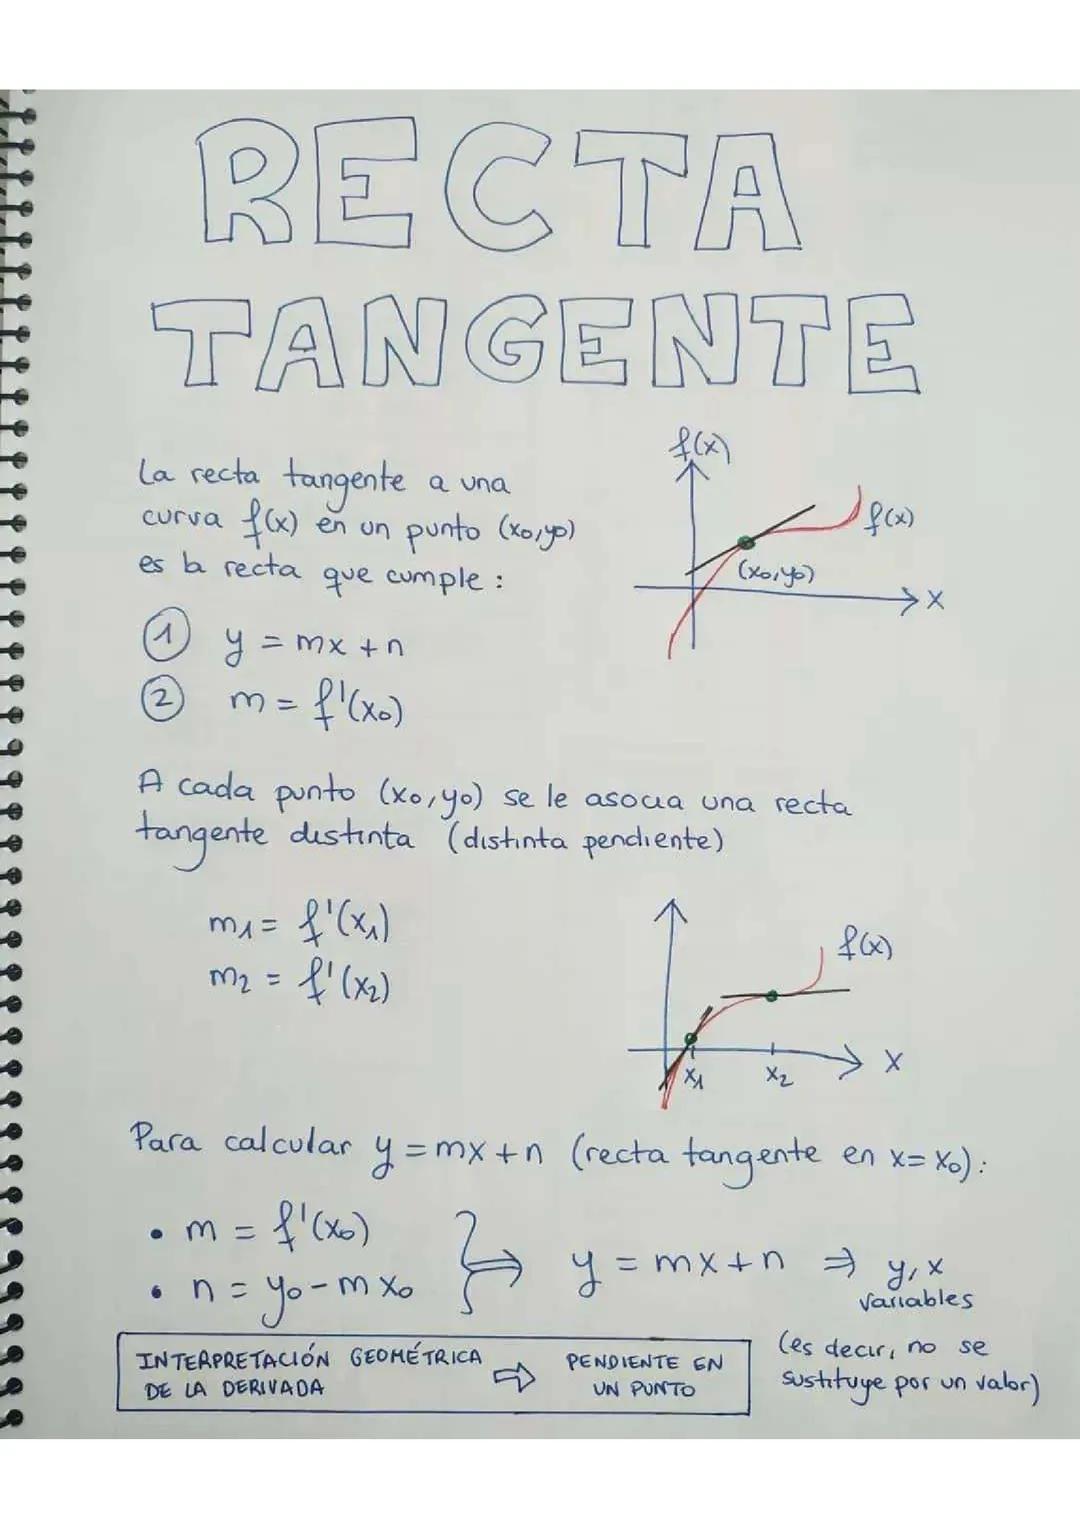 RECTA
TANGENTE
La recta tangente a una
curva f(x) en un punto (x₀,y₀)
es la recta que cumple:
f(x)
f(x)
(x₀,y₀)
x
① y = mx + n
② m = f'(x₀)
A cada punto (x₀,y₀) se le asocia una recta
tangente distinta (distinta pendiente)
m₁ = f'(x₁)
m₂ = f'(x₂)
f(x)
x₁ x₂ x
Para calcular y = mx + n (recta tangente en x = x₀):
• m = f'(x₀)
• n = y₀ - m x₀
} ⇒ y = mx + n ⇒ y, x
variables
(es decir, no se
sustituye por un valor)
INTERPRETACIÓN GEOMÉTRICA
DE LA DERIVADA
⇨ PENDIENTE EN
UN PUNTO